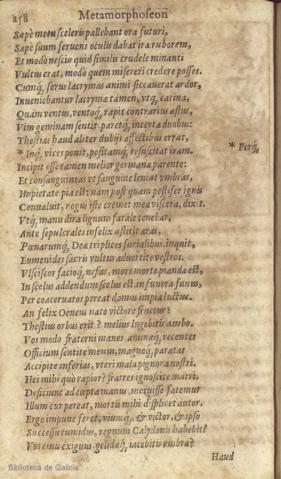 258 Metamorphoseon
Sæpè metu sceleris pallebant ora futuri,
Sæpè suum feruens oculis dabat ira ruborem,
Et modò nescio quid similis crudele minanti
Vultus erat, modò quem misereri credere posses.
Cumq́, ferus lacrymas animi siccauerat ardor,
Inueniebantur lacryma tamen, vtq́, carina,
Quàm ventus, ventoq́, rapit contrarius æstus,
Vim geminam sentit, paretq́, incerta duobus:
Thestias haud aliter dubijs affectibus errat,
* Inq́, vices ponit, positamq́, resuscitat iram. * Perq́,
Incipit esse tamen melior germana parente:
Et consanguineas vt sanguine leniat vmbras,
Impietate pia est: nam post quàm pestifer ignis
Conualuit, rogus iste cremet mea viscera, dixit.
Vtq́, manu dira lignum fatale tenebat,
Ante sepulcrales infelix astitit aras,
Pœnarumq́, Deæ triplices furialibus, inquit,
Eumenides sacris vultus aduertite vestros.
Vlciscor facioq́, nefas, mors morte pianda est,
In scelus addendum scelus est, in funera funus,
Per coaceruatos pereat domus impia luctus.
An felix Oeneus nato victore fruetur?
Thestius orbus erit? melius lugebitis ambo.
Vos modò fraterni manes animæq́, recentes
Officium sentite meum, magnoq́, paratas
Accipite inferias, vteri mala pignora nostri.
Hei mihi quò rapior? fratres ignoscite matri.
Deficiunt ad cœpta manus, meruisse fatemur
Illum cur pereat, mortis mihi displicet autor.
Ergo impune feret, viuusq́, & victor, & ipso
Successu tumidus, regnum Calydonis habebit?
Vos cinis exiguus gelidæq́, iacebitis vmbræ?
Haud
Biblioteca de Galicia